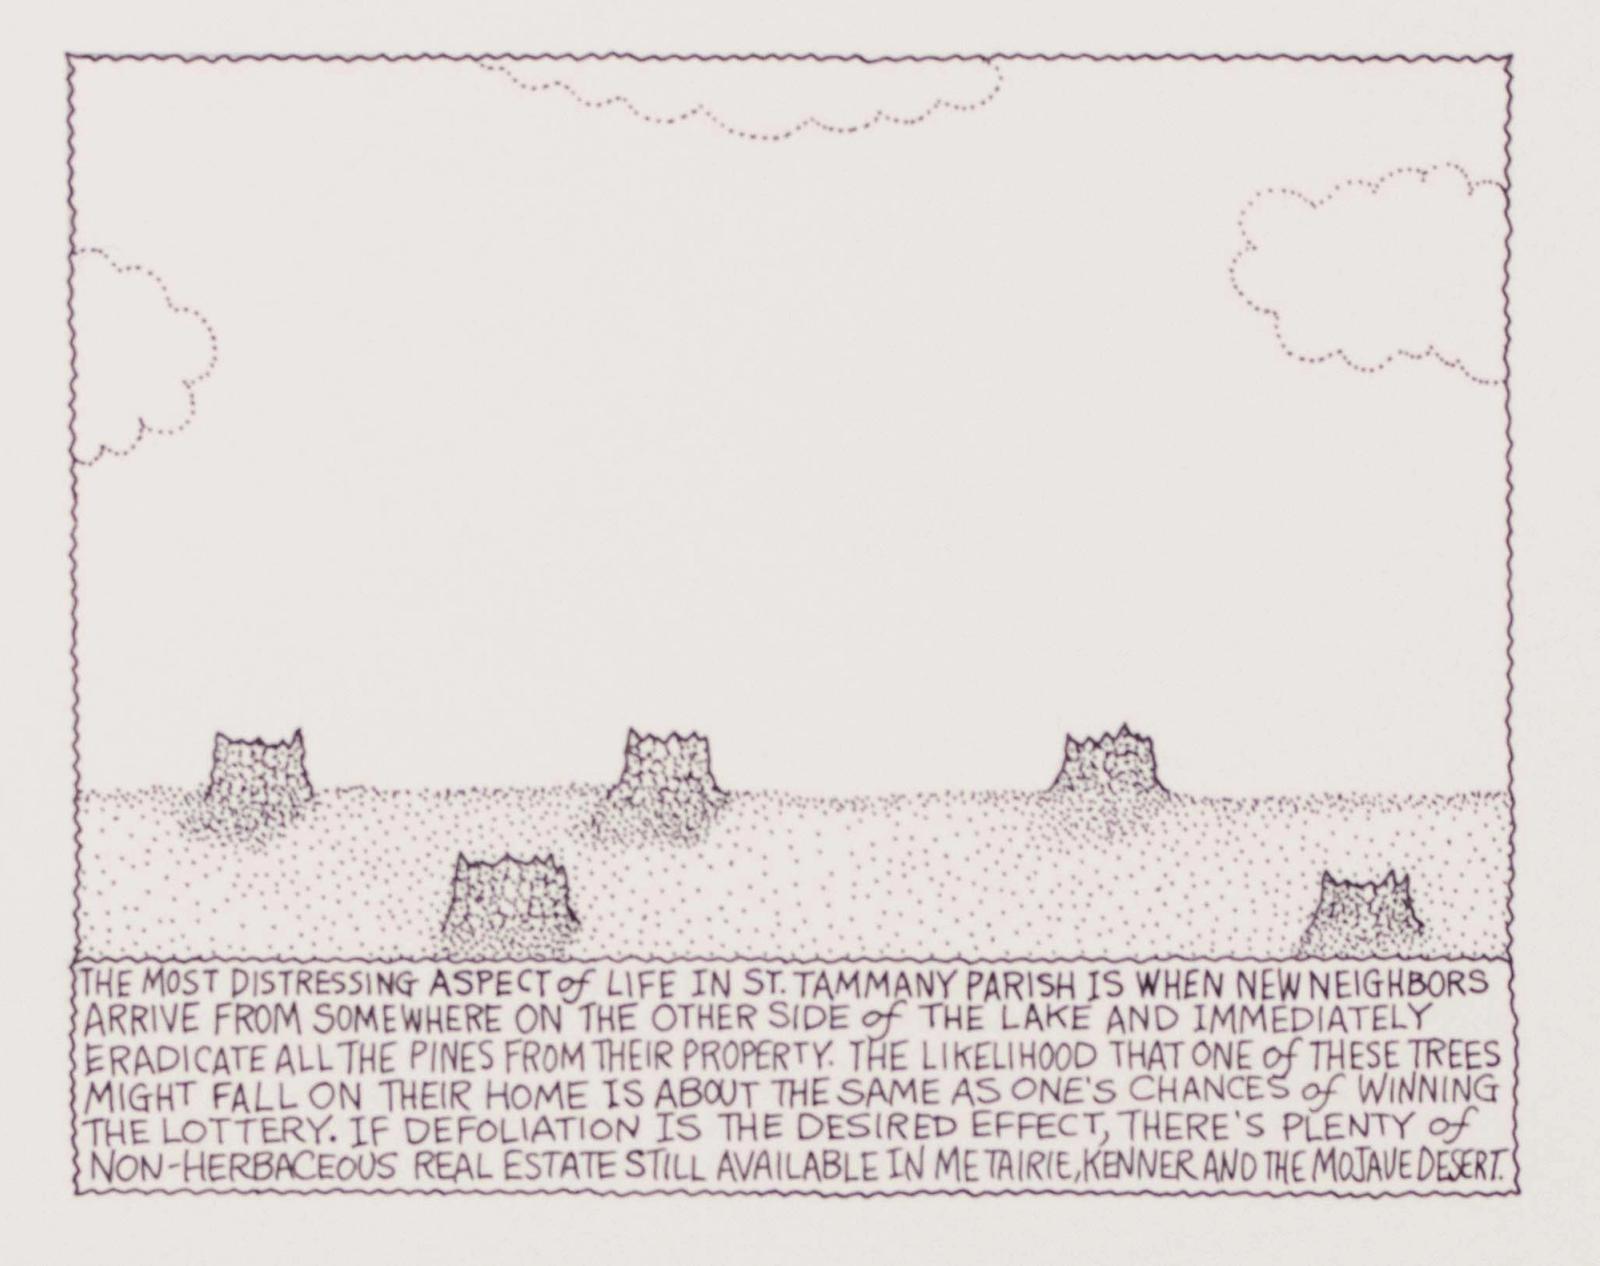 THE MOST DISTRESSING ASPECT of LIFE IN ST. TAMMANY PARISH IS WHEN NEW NEIGHBORS
ARRIVE FROM SOMEWHERE ON THE OTHER SIDE of THE LAKE AND IMMEDIATELY
ERADICATE ALL THE PINES FROM THEIR PROPERTY. THE LIKELIHOOD THAT ONE of THESE TREES
MIGHT FALL ON THEIR HOME IS ABOUT THE SAME AS ONE'S CHANCES of WINNING
THE LOTTERY. IF DEFOLIATION IS THE DESIRED EFFECT, THERE'S PLENTY of
NON-HERBACEOUS REAL ESTATE STILL AVAILABLE IN METAIRIE, KENNER AND THE MOJAVE DESERT.